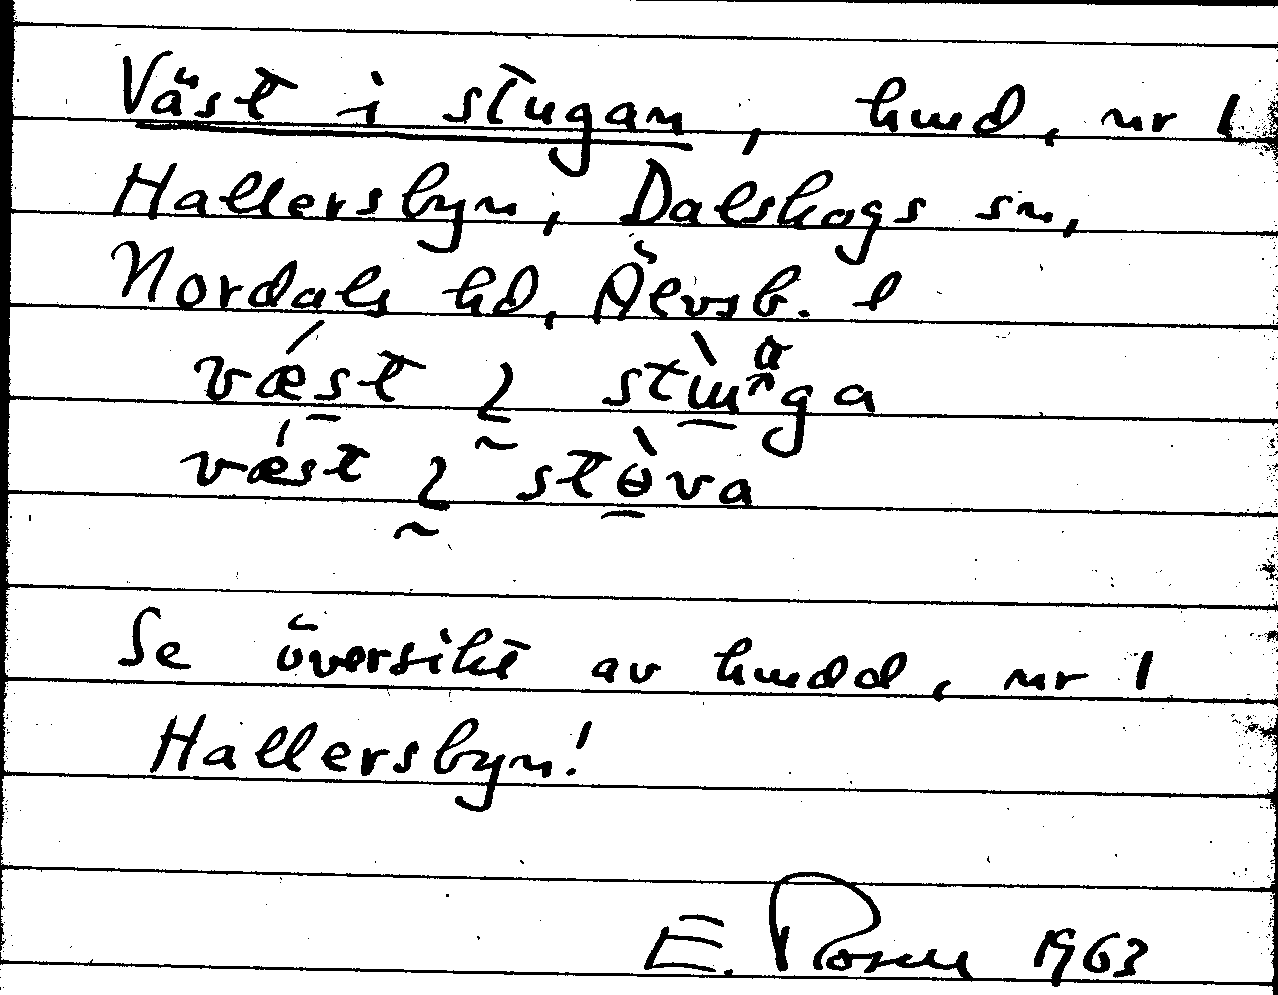 Väst i stugan, hmd. nr 1
Hallersbyn, Dalskogs sn,
Nordals hd, Älvsb. l
væst
væst
Se översikt av hmdd. nr 1
Hallersbyn!
E. Rosell 1963